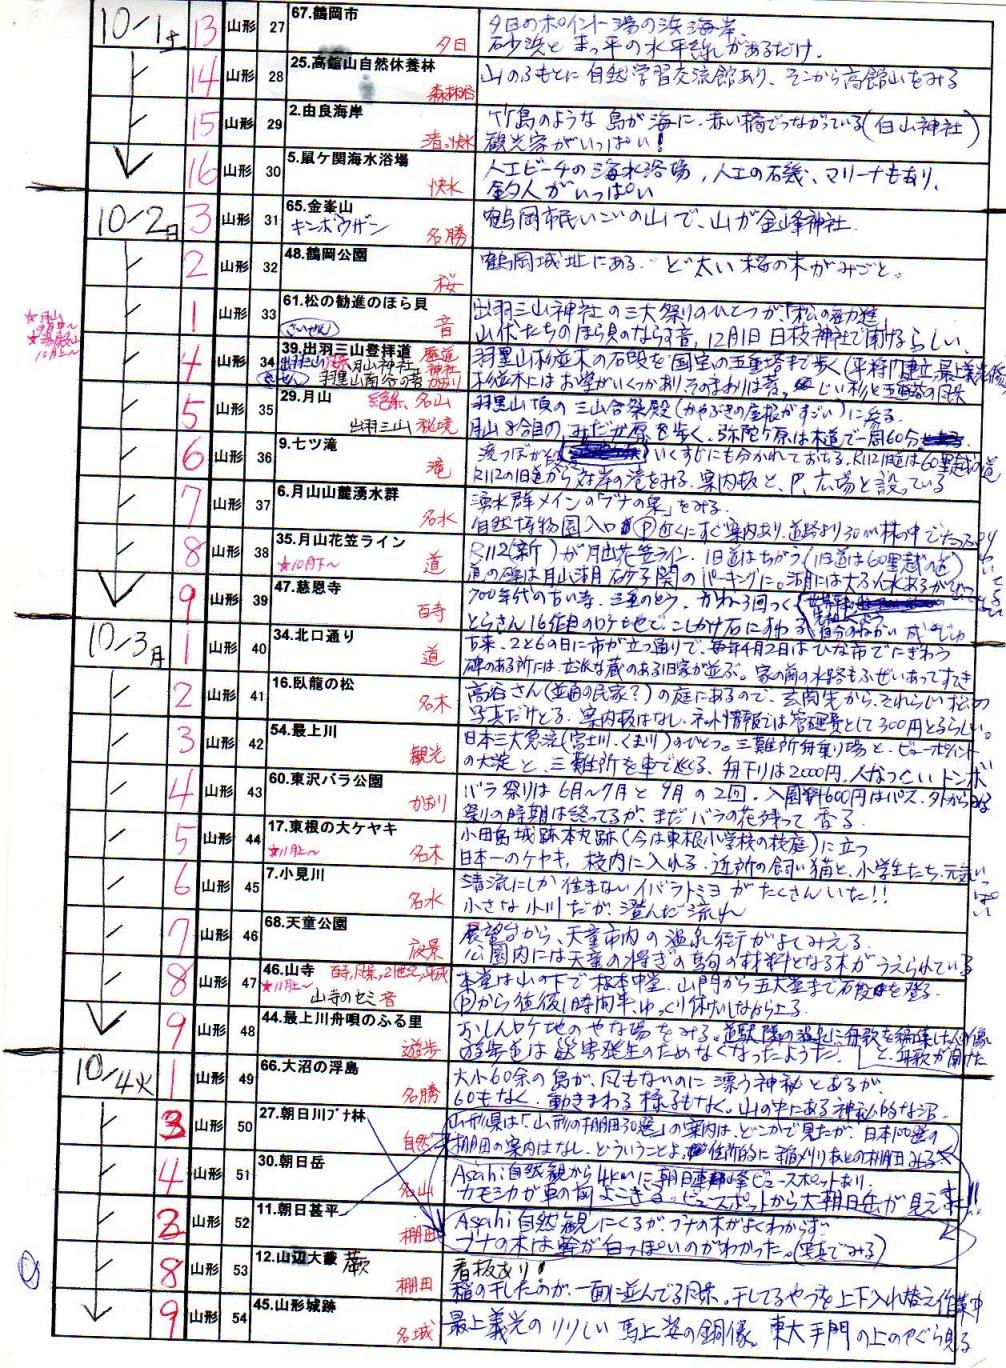 10/1土 13 山形 27 67.鶴岡市 夕日 夕日のポイント湯の浜海岸.
砂浜とまっ平の水平線があるだけ.
14 山形 28 25.高舘山自然休養林 森林浴 山のふもとに自然学習交流館あり、そこから高館山をみる
15 山形 29 2.由良海岸 渚・快水 竹島のような島が海に、赤い橋でつながっている(白山神社)
観光客がいっぱい!
16 山形 30 5.鼠ケ関海水浴場 快水 人工ビーチの海水浴場、人工の石磯、マリーナもあり、
釣人がいっぱい
10/2日 3 山形 31 65.金峯山 キンボウザン 名勝 鶴岡市民いこいの山で、山が金峰神社.
2 山形 32 48.鶴岡公園 桜 鶴岡城址にある. ど太い桜の木がみごと。
1 山形 33 61.松の勧進のほら貝 音 出羽三山神社の三大祭りのひとつが「松の勧進」
山伏たちのほら貝のならす音、12月1日日枝神社で聞けるらしい、
★月山
★湯殿山
10月上〜
4 山形 34 39.出羽三山登拝道 歴道 羽黒山杉並木の石段を国宝の五重塔まで歩く
月山神社 神社
羽黒山南谷の
5 山形 35 29.月山 絶景、名山 羽黒山頂の三山合祭殿(かやぶきの屋根がすごい)に参る
出羽三山 秘境 月山8合目のみだが原を歩く、弥陀ケ原は木道で一周60分
6 山形 36 9.七ツ滝 滝 いくすじにも分かれておちる、R112旧道は60里越の道
R112の旧道から対岸の滝をみる、案内板と、P、広場と設っている
7 山形 37 6.月山山麓湧水群 名水 湧水群メインの「ブナの泉」をみる、
自然博物園入口 Ⓟ近くにすぐ案内あり
8 山形 38 35.月山花笠ライン ★10月下〜 道 R112(新)が月山花笠ライン. 旧道はちがう(旧道は60里越の道)
道の碑は月山湖砂子関のパーキングに。
9 山形 39 47.慈恩寺 古寺 700年代の古い寺、三重のとう、かね3回つく
とらさん16作目のロケ地でこしかけ石にすわる
10/3月 1 山形 40 34.北口通り 道 古来、2と6の日に市が立つ通りで、毎年4月2日はひな市でにぎわう
碑のある所には立派な蔵のある旧家が並ぶ。家の前の水路もふぜいあってすてき
2 山形 41 16.臥龍の松 名木 高谷さん(普通の民家?)の庭にあるので、玄関先から、それらしい松の
写真だけとる、案内板はなし、ネット情報では管理費として300円とるらしい。
3 山形 42 54.最上川 観光 日本三大急流(富士川、くま川)のひとつ。三難所舟乗り場と、ビューポイント
の大淀と、三難所を車で巡る、舟下りは2000円、人なつこいトンボ
4 山形 43 60.東沢バラ公園 かおり バラ祭りは6月〜7月と9月の2回、入園料600円はパス、外からみる
祭りの時期は終ってるが、まだバラの花が残って香る
5 山形 44 17.東根の大ケヤキ ★11月上〜 名木 小田島城跡本丸跡(今は東根小学校の校庭)に立つ
日本一のケヤキ、校内に入れる、近所の飼い猫と、小学生たち、元気いっぱい
6 山形 45 7.小見川 名水 清流にしか住まないイバラトミヨがたくさんいた!!
小さな小川だが、澄んだ流れ
7 山形 46 68.天童公園 夜景 展望台から、天童市内の温泉街がよくみえる
公園内には天童の将ぎの駒の材料となる木がうえられている
8 山形 47 46.山寺 ★11月上〜 本堂は山の下で根本中堂、山門から五大堂まで石段を登る.
山寺のセミ 音 Ⓟから往復1時間半、ゆっくり休けいしながら上る
9 山形 48 44.最上川舟唄のふる里 遊歩 おしんロケ地のやな場をみる。道の駅隣の温泉に舟歌を編集した人の像と、舟歌が聞けた
遊歩道は災害発生のためなくなったようだ.
10/4火 1 山形 49 66.大沼の浮島 名勝 大小60余の島が、風もないのに漂う神秘とあるが、
60もなく、動きまわる様子もなく。山の中にある神秘的な沼.
3 山形 50 27.朝日川ブナ林 自然 山形県は「山形の棚田30選」の案内は、どこかで見たが、日本100選の
棚田の案内はなし、どういうことよ、住所的に稲刈りあとの棚田みる
4 山形 51 30.朝日岳 名山 Asahi自然観から4kmに朝日連峰ビュースポットあり、
カモシカが車の前よこぎる。ビュースポットから大朝日岳が見えた!!
2 山形 52 11.朝日甚平 棚田 Asahi自然観にくるが、ブナの木がよくわからず
ブナの木は幹が白っぽいのがわかった。(写真でみる)
8 山形 53 12.山辺大蕨 蕨 棚田 看板あり!
稲の干したのが、一面に並んでる風景、干してるやつを上下入れ替え作業中
9 山形 54 45.山形城跡 名城 最上義光のりりしい馬上姿の銅像、東大手門の上のやぐら見る